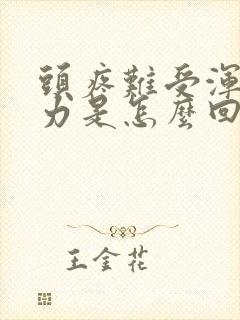 頭疼難受渾
力是怎麼回
王金花